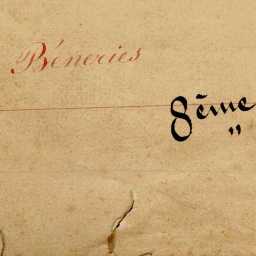 Béneries
8ème
"